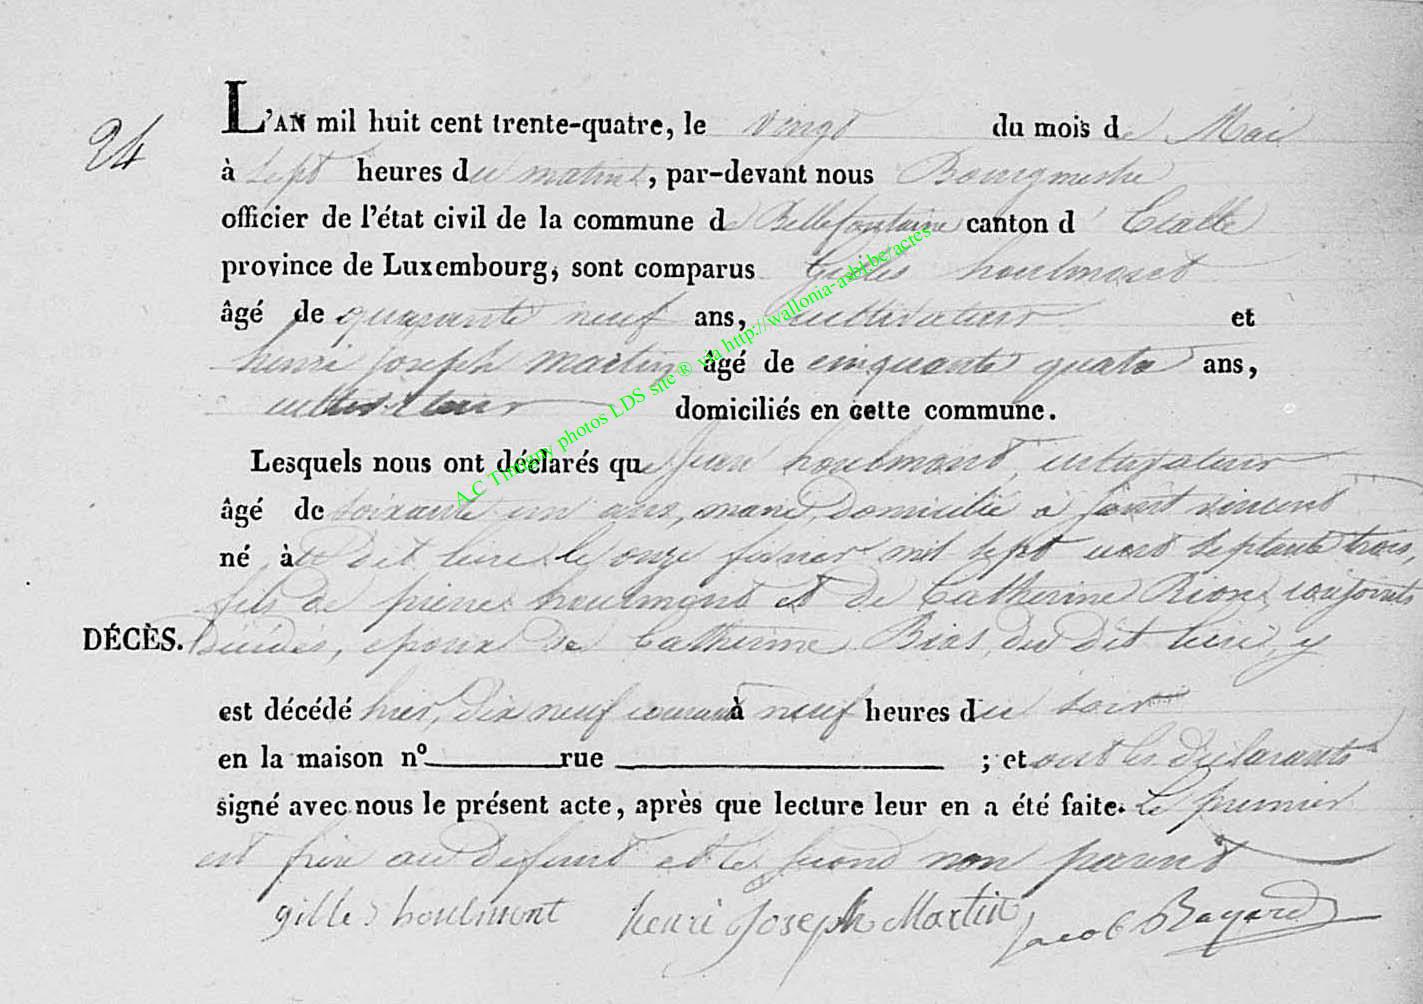 24
L'AN mil huit cent trente-quatre, le vingt du mois de Mai
à sept heures du matin, par-devant nous Bourgmestre
officier de l'état civil de la commune de Bellefontaine canton d'Etalle
province de Luxembourg, sont comparus Gilles houlmont
âgé de quarante neuf ans, cultivateur et
henri joseph martin âgé de cinquante quatre ans,
cultivateur domiciliés en cette commune.
Lesquels nous ont déclarés que Jean houlmont, cultivateur
âgé de soixante un ans, marié, domicilié à saint vincent
né à dit lieu le onze fevrier mil sept cent septante trois,
fils de pierre houlmont et de Catherine Rion, conjoints
DÉCÈS. décédés, epoux de Catherine Bias, du dit lieu, y
est décédé hier, dix neuf courant à neuf heures du soir
en la maison nº rue ; et ont les déclarants
signé avec nous le présent acte, après que lecture leur en a été faite. Le premier
est frère au defunt et le second non parent
gilles houlmont henri Joseph Martin Jacob Bayard
A.C Tintigny photos LDS site ® via http://wallonia-asbl.be/actes